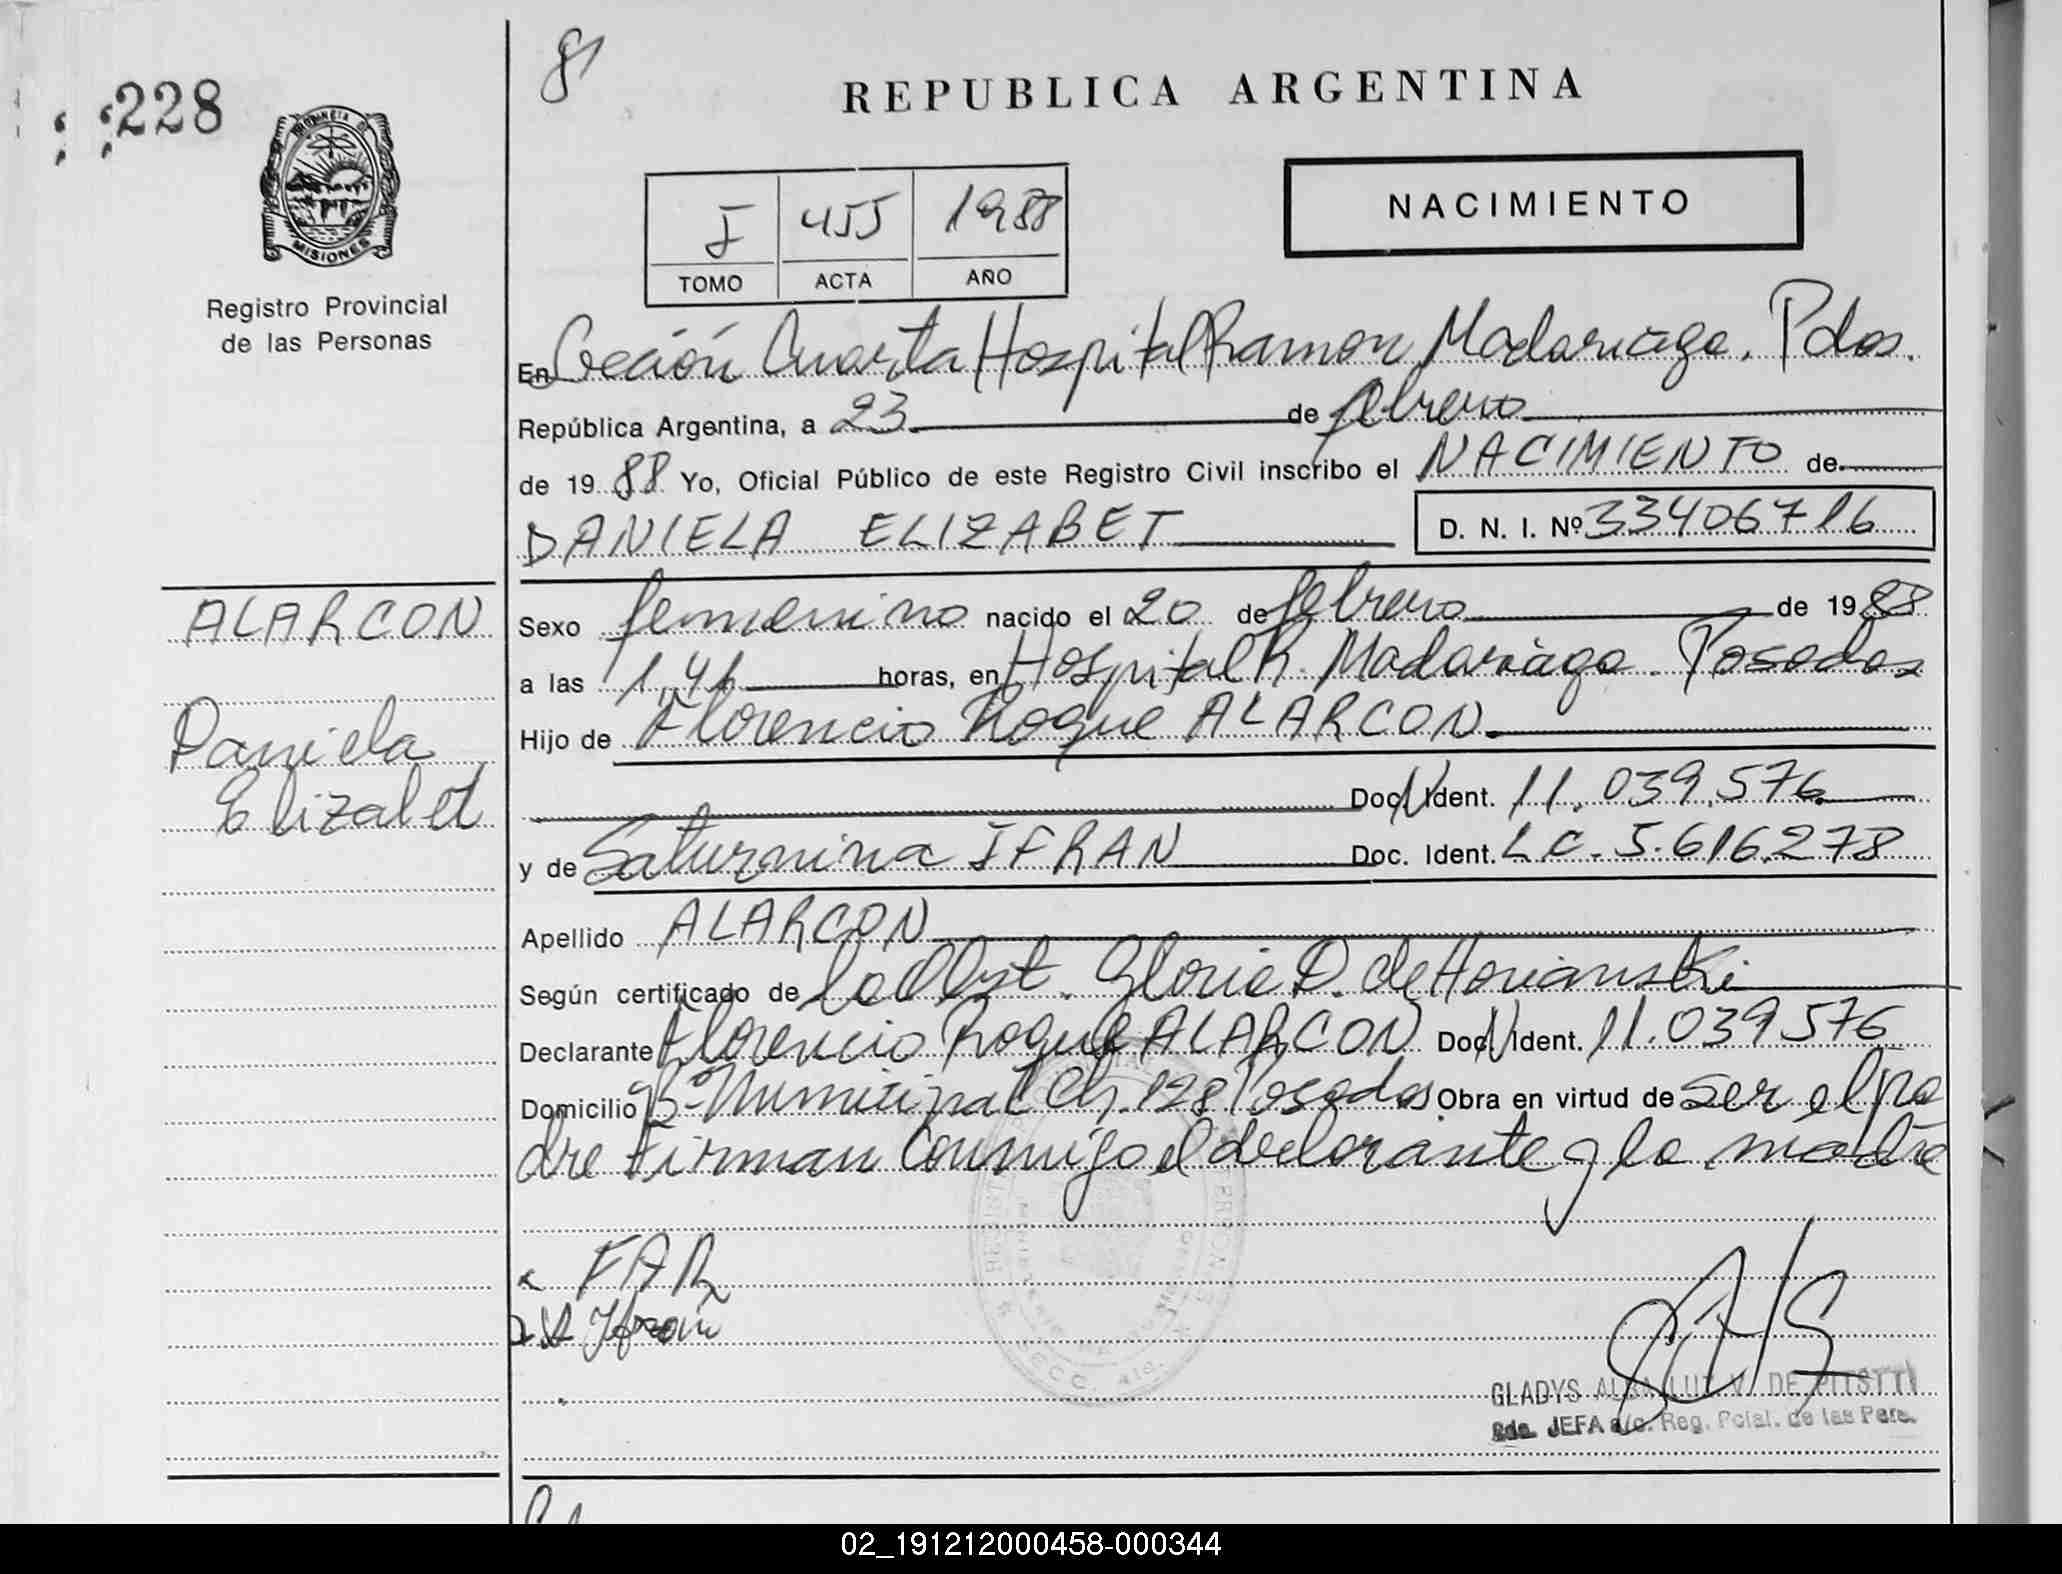 228
81
REPUBLICA ARGENTINA
PROVINCIA DE MISIONES
Registro Provincial
de las Personas
I 455 1988
TOMO ACTA AÑO
NACIMIENTO
En Sección Cuarta Hospital Ramon Madariaga. Pdas.
República Argentina, a 23 de febrero
de 1988 Yo, Oficial Público de este Registro Civil inscribo el NACIMIENTO de
DANIELA ELIZABET D. N. I. Nº 33406716
ALARCON
Daniela
Elizabet
Sexo femenino nacido el 20 de febrero de 1988
a las 1,41 horas, en Hospital R. Madariaga. Posadas
Hijo de Florencio Roque ALARCON
Doc. Ident. 11.039.576
y de Saturnina IFRAN Doc. Ident. L C. 5.616.278
Apellido ALARCON
Según certificado de la Obst. Gloria D. de Horianski
Declarante Florencio Roque ALARCON Doc. Ident. 11.039576
Domicilio Bº Municipal Ch. 128 Posadas Obra en virtud de ser el pa
dre Firman Conmigo el declarante y la madre
x FAR
Ifran
GLADYS ALBA LUZ V. DE
JEFA a/c. Reg. Pcial. de las Pers.
02_191212000458-000344